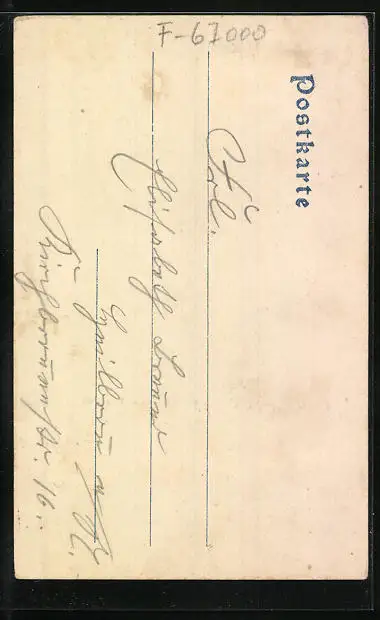 F-67000
Postkarte
Frl.
Elisabeth
Heilbronn a/N.
Kirchbrunnenstr. 16.